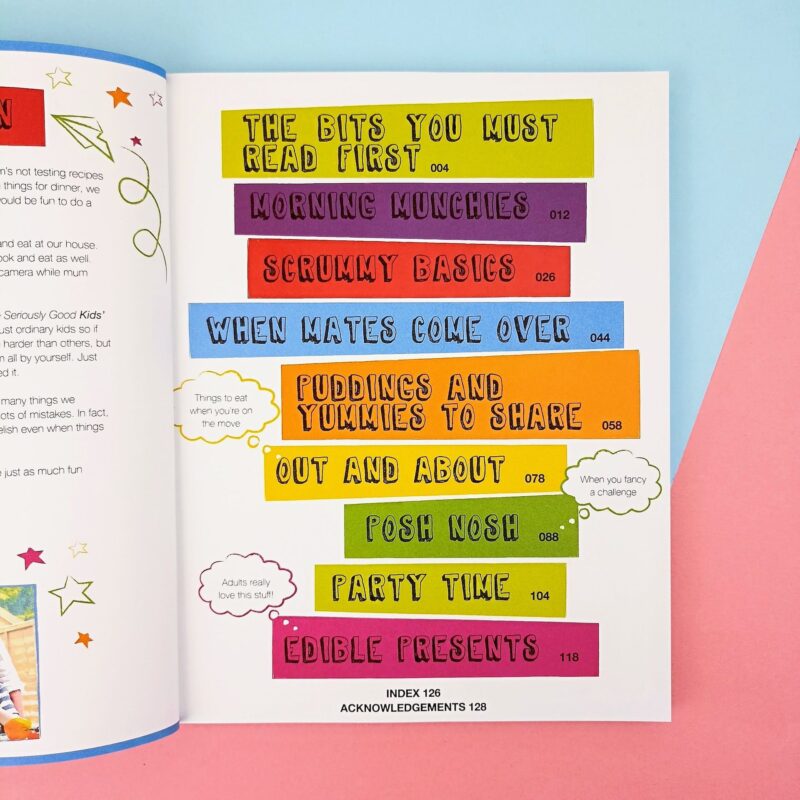 N
n's not testing recipes
things for dinner, we
would be fun to do a
and eat at our house.
ook and eat as well.
camera while mum
Seriously Good Kids'
ust ordinary kids so if
harder than others, but
all by yourself. Just
ed it.
many things we
ots of mistakes. In fact,
elish even when things
just as much fun
THE BITS YOU MUST
READ FIRST 004
MORNING MUNCHIES 012
SCRUMMY BASICS 026
WHEN MATES COME OVER 044
PUDDINGS AND
YUMMIES TO SHARE 058
Things to eat
when you're on
the move
OUT AND ABOUT 078
When you fancy
a challenge
POSH NOSH 088
PARTY TIME 104
Adults really
love this stuff!
EDIBLE PRESENTS 118
INDEX 126
ACKNOWLEDGEMENTS 128